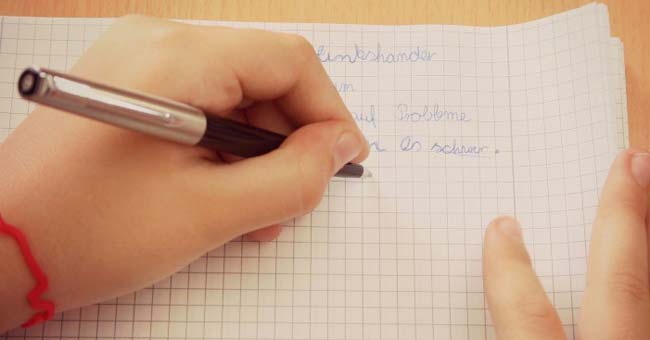 Linkshander
auf Probleme
es schwer.